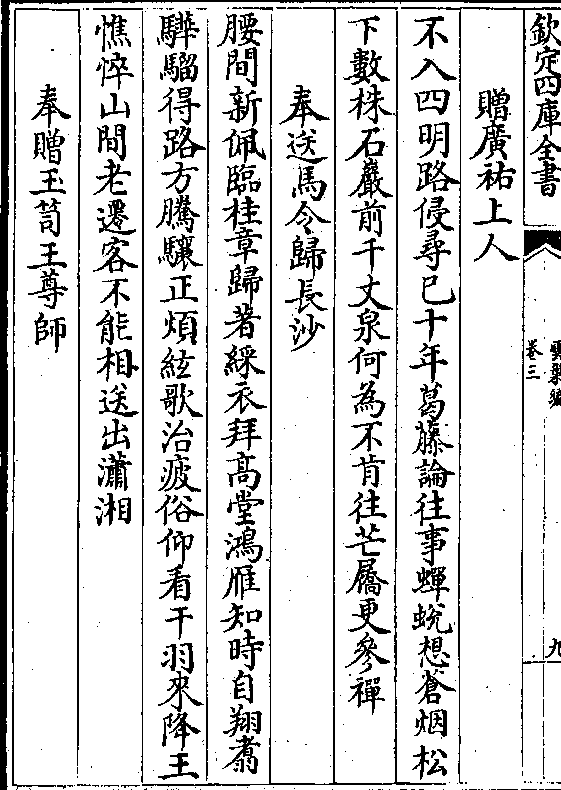 欽定四庫全書
卷三
九
贈廣祐上人
不入四明路侵尋已十年葛藤論往事蟬蛻想蒼烟松
下數株石巖前千丈泉何為不肯往芒屩更參禪
奉送馬令歸長沙
腰間新佩臨桂章歸著綵衣拜高堂鴻雁知時自翔翥
驊騮得路方騰驤正煩絃歌治疲俗仰看干羽來降王
憔悴山間老遷客不能相送出瀟湘
奉贈玉笥王尊師